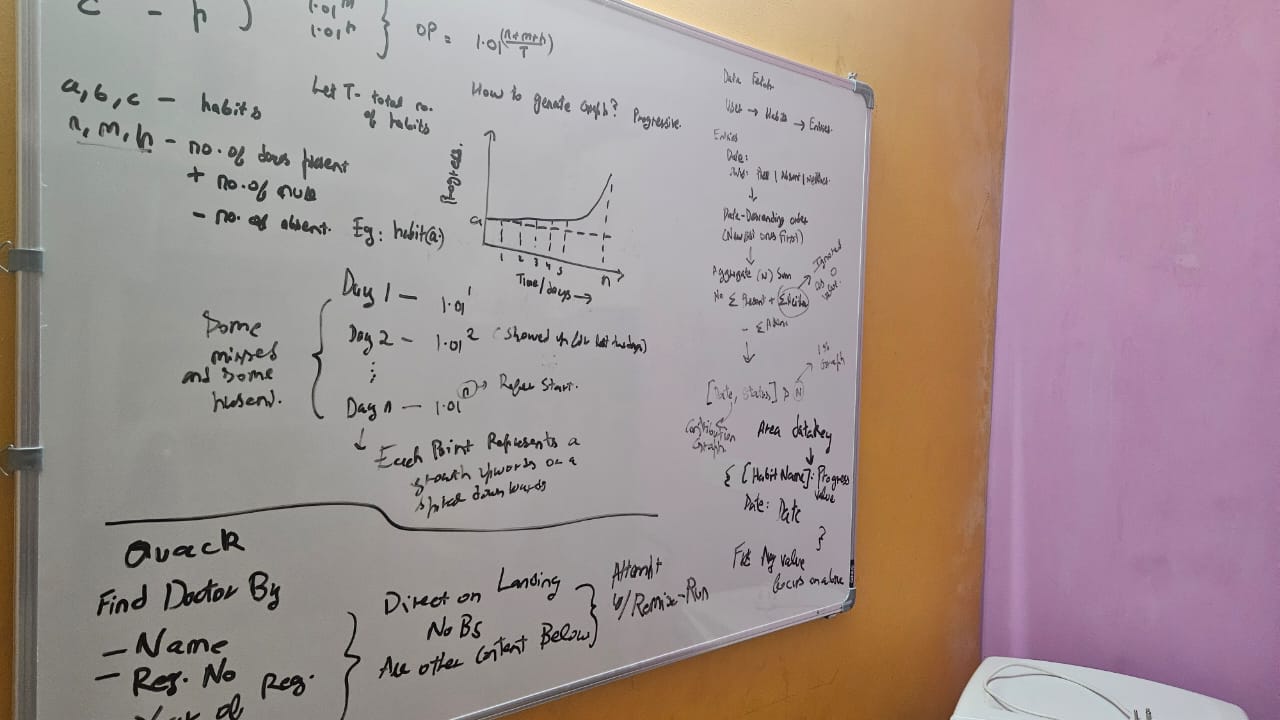 c - h }
1.01^m
1.01^h
OP = 1.01^((n+m+h)/T)
a, b, c - habits
n, m, h - no. of days present
+ no. of
- no. of absent.
Let T - total no.
of habits
How to genrate Graph? Progressive.
Progress.
a
1 2 3 4 5 n
Time/days →
Eg: habit(a)
Day 1 - 1.01^1
Day 2 - 1.01^2 (Showed up for last two days)
Day n - 1.01^n → Refer Start.
Some
misses
and some
present.
↓ Each Point Represents a
growth upwards or a
downwards
Data Fetch
User → Habits → Entries
Entries
Date:
↓
Date - Descending order
(Newest ones first)
↓
Aggregate (N) Sum
No Σ Present + Σ Neither → Ignored
as 0
value.
- Σ Absent
↓
[Date, Status] > N → Graph
Contribution
Graph
Area datakey
↓
{ [HabitName]: Progress
value
Date: Date
}
Fix Avg value
Quack
Find Doctor By
- Name
- Reg. No
Year of Reg.
Direct on Landing
No Bs
All other Content Below
Attempt
w/ Remix-Run